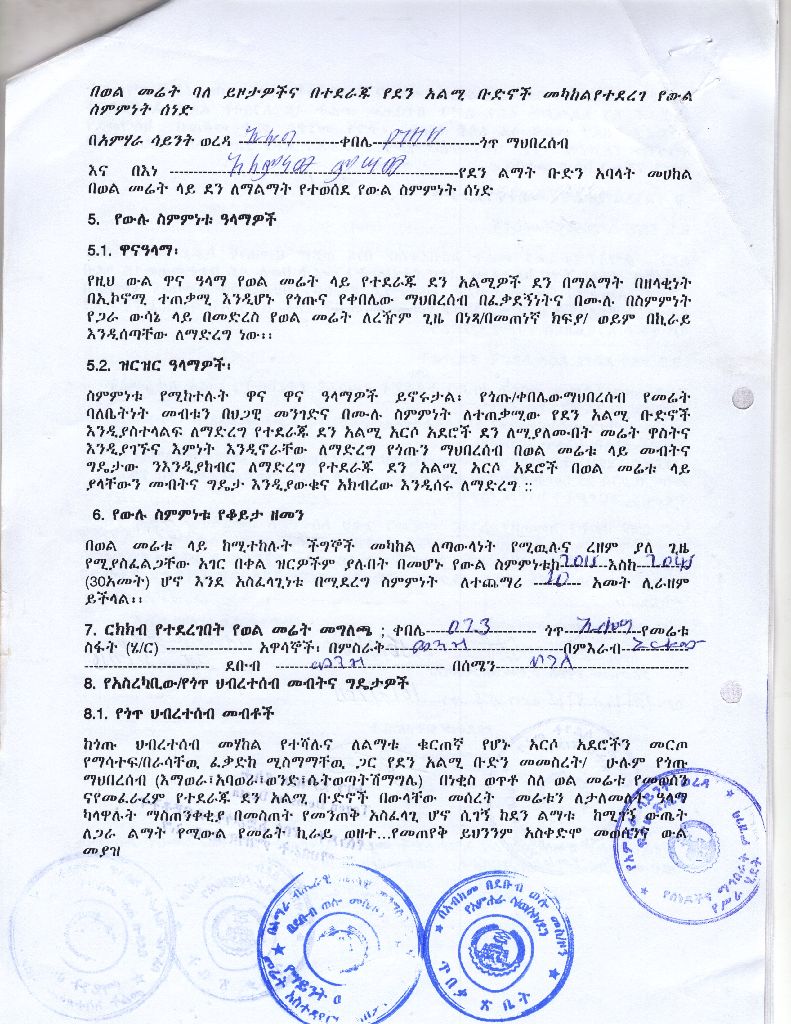 በወል መሬት ባለ ይዞታዎችና በተደራጁ የደን አልሚ ቡድኖች መካከልየተደረገ የውል
ስምምነት ሰነድ
በአምሃራ ሳይንት ወረዳ ----------------ቀበሌ----------------ጎጥ ማህበረሰብ
እና በእነ ----------------የደን ልማት ቡድን አባላት መሀከል
በወል መሬት ላይ ደን ለማልማት የተወሰደ የውል ስምምነት ሰነድ
5. የውሉ ስምምነቱ ዓላማዎች
5.1. ዋናዓላማ፡
የዚህ ውል ዋና ዓላማ የወል መሬት ላይ የተደራጁ ደን አልሚዎች ደን በማልማት በዘላቂነት
በኢኮኖሚ ተጠቃሚ እንዲሆኑ የጎጡና የቀበሌው ማህበረሰብ በፈቃደኝነትና በሙሉ በስምምነት
የጋራ ውሳኔ ላይ በመድረስ የወል መሬት ለረዥም ጊዜ በነጻ/በመጠነኛ ክፍያ/ ወይም በኪራይ
እንዲሰጣቸው ለማድረግ ነው፡፡
5.2. ዝርዝር ዓላማዎች፡
ስምምነቱ የሚከተሉት ዋና ዋና ዓላማዎች ይኖሩታል፡ የጎጡ/ቀበሌውማህበረሰብ የመሬት
ባለቤትነት መብቱን በህጋዊ መንገድና በሙሉ ስምምነት ለተጠቃሚው የደን አልሚ ቡድኖች
እንዲያስተላልፍ ለማድረግ የተደራጁ ደን አልሚ አርሶ አደሮች ደን ለሚያለሙበት መሬት ዋስትና
እንዲያገኙና እምነት እንዲኖራቸው ለማድረግ የጎጡን ማህበረሰብ በወል መሬቱ ላይ መብትና
ግዴታው ንእንዲያከብር ለማድረግ የተደራጁ ደን አልሚ አርሶ አደሮች በወል መሬቱ ላይ
ያላቸውን መብትና ግዴታ እንዲያውቁና አክብረው እንዲሰሩ ለማድረግ ::
6. የውሉ ስምምነቱ የቆይታ ዘመን
በወል መሬቱ ላይ ከሚተከሉት ችግኞች መካከል ለጣውላነት የሚዉሉና ረዘም ያለ ጊዜ
የሚያስፈልጋቸው አገር በቀል ዝርዎችም ያሉበት በመሆኑ የውል ስምምነቱከ--------እስከ--------
(30አመት) ሆኖ እንደ አስፈላጊነቱ በሚደረግ ስምምነት ለተጨማሪ ---10--- አመት ሊራዘም
ይችላል፡፡
7. ርክክብ የተደረገበት የወል መሬት መግለጫ : ቀበሌ---023--- ጎጥ--------የመሬቱ
ስፋት (ሄ/ር) ---------------- አዋሳኞች፡ በምስራቅ----------------በምእራብ--------
---------------- ደቡብ ---------------- በሰሜን----------------
8. የአስረካቢው/የጎጥ ህብረተሰብ መብትና ግዴታዎች
8.1. የጎጥ ህብረተሰብ መብቶች
ከጎጡ ህብረተሰብ መሃከል የተሻሉና ለልማቱ ቁርጠኛ የሆኑ አርሶ አደሮችን መርጦ
የማሳተፍ/በራሳቸዉ ፈቃድከ ሚስማማቸዉ ጋር የደን አልሚ ቡድን መመስረት/ ሁሉም የጎጡ
ማህበረሰብ (እማወራ፣አባወራ፣ወንድ፣ሴትወጣትሽማግሌ) በነቂስ ወጥቶ ስለ ወል መሬቱ የመወሰን
ናየመፈራረም የተደራጁ ደን አልሚ ቡድኖች በውላቸው መሰረት መሬቱን ለታለመለት ዓላማ
ካላዋሉት ማስጠንቀቂያ በመስጠት የመንጠቅ አስፈላጊ ሆኖ ሲገኝ ከደን ልማቱ ከሚገኝ ውጤት
ለጋራ ልማት የሚውል የመሬት ኪራይ ወዘተ...የመጠየቅ ይህንንም አስቀድሞ መወሰንና ውል
መያዝ